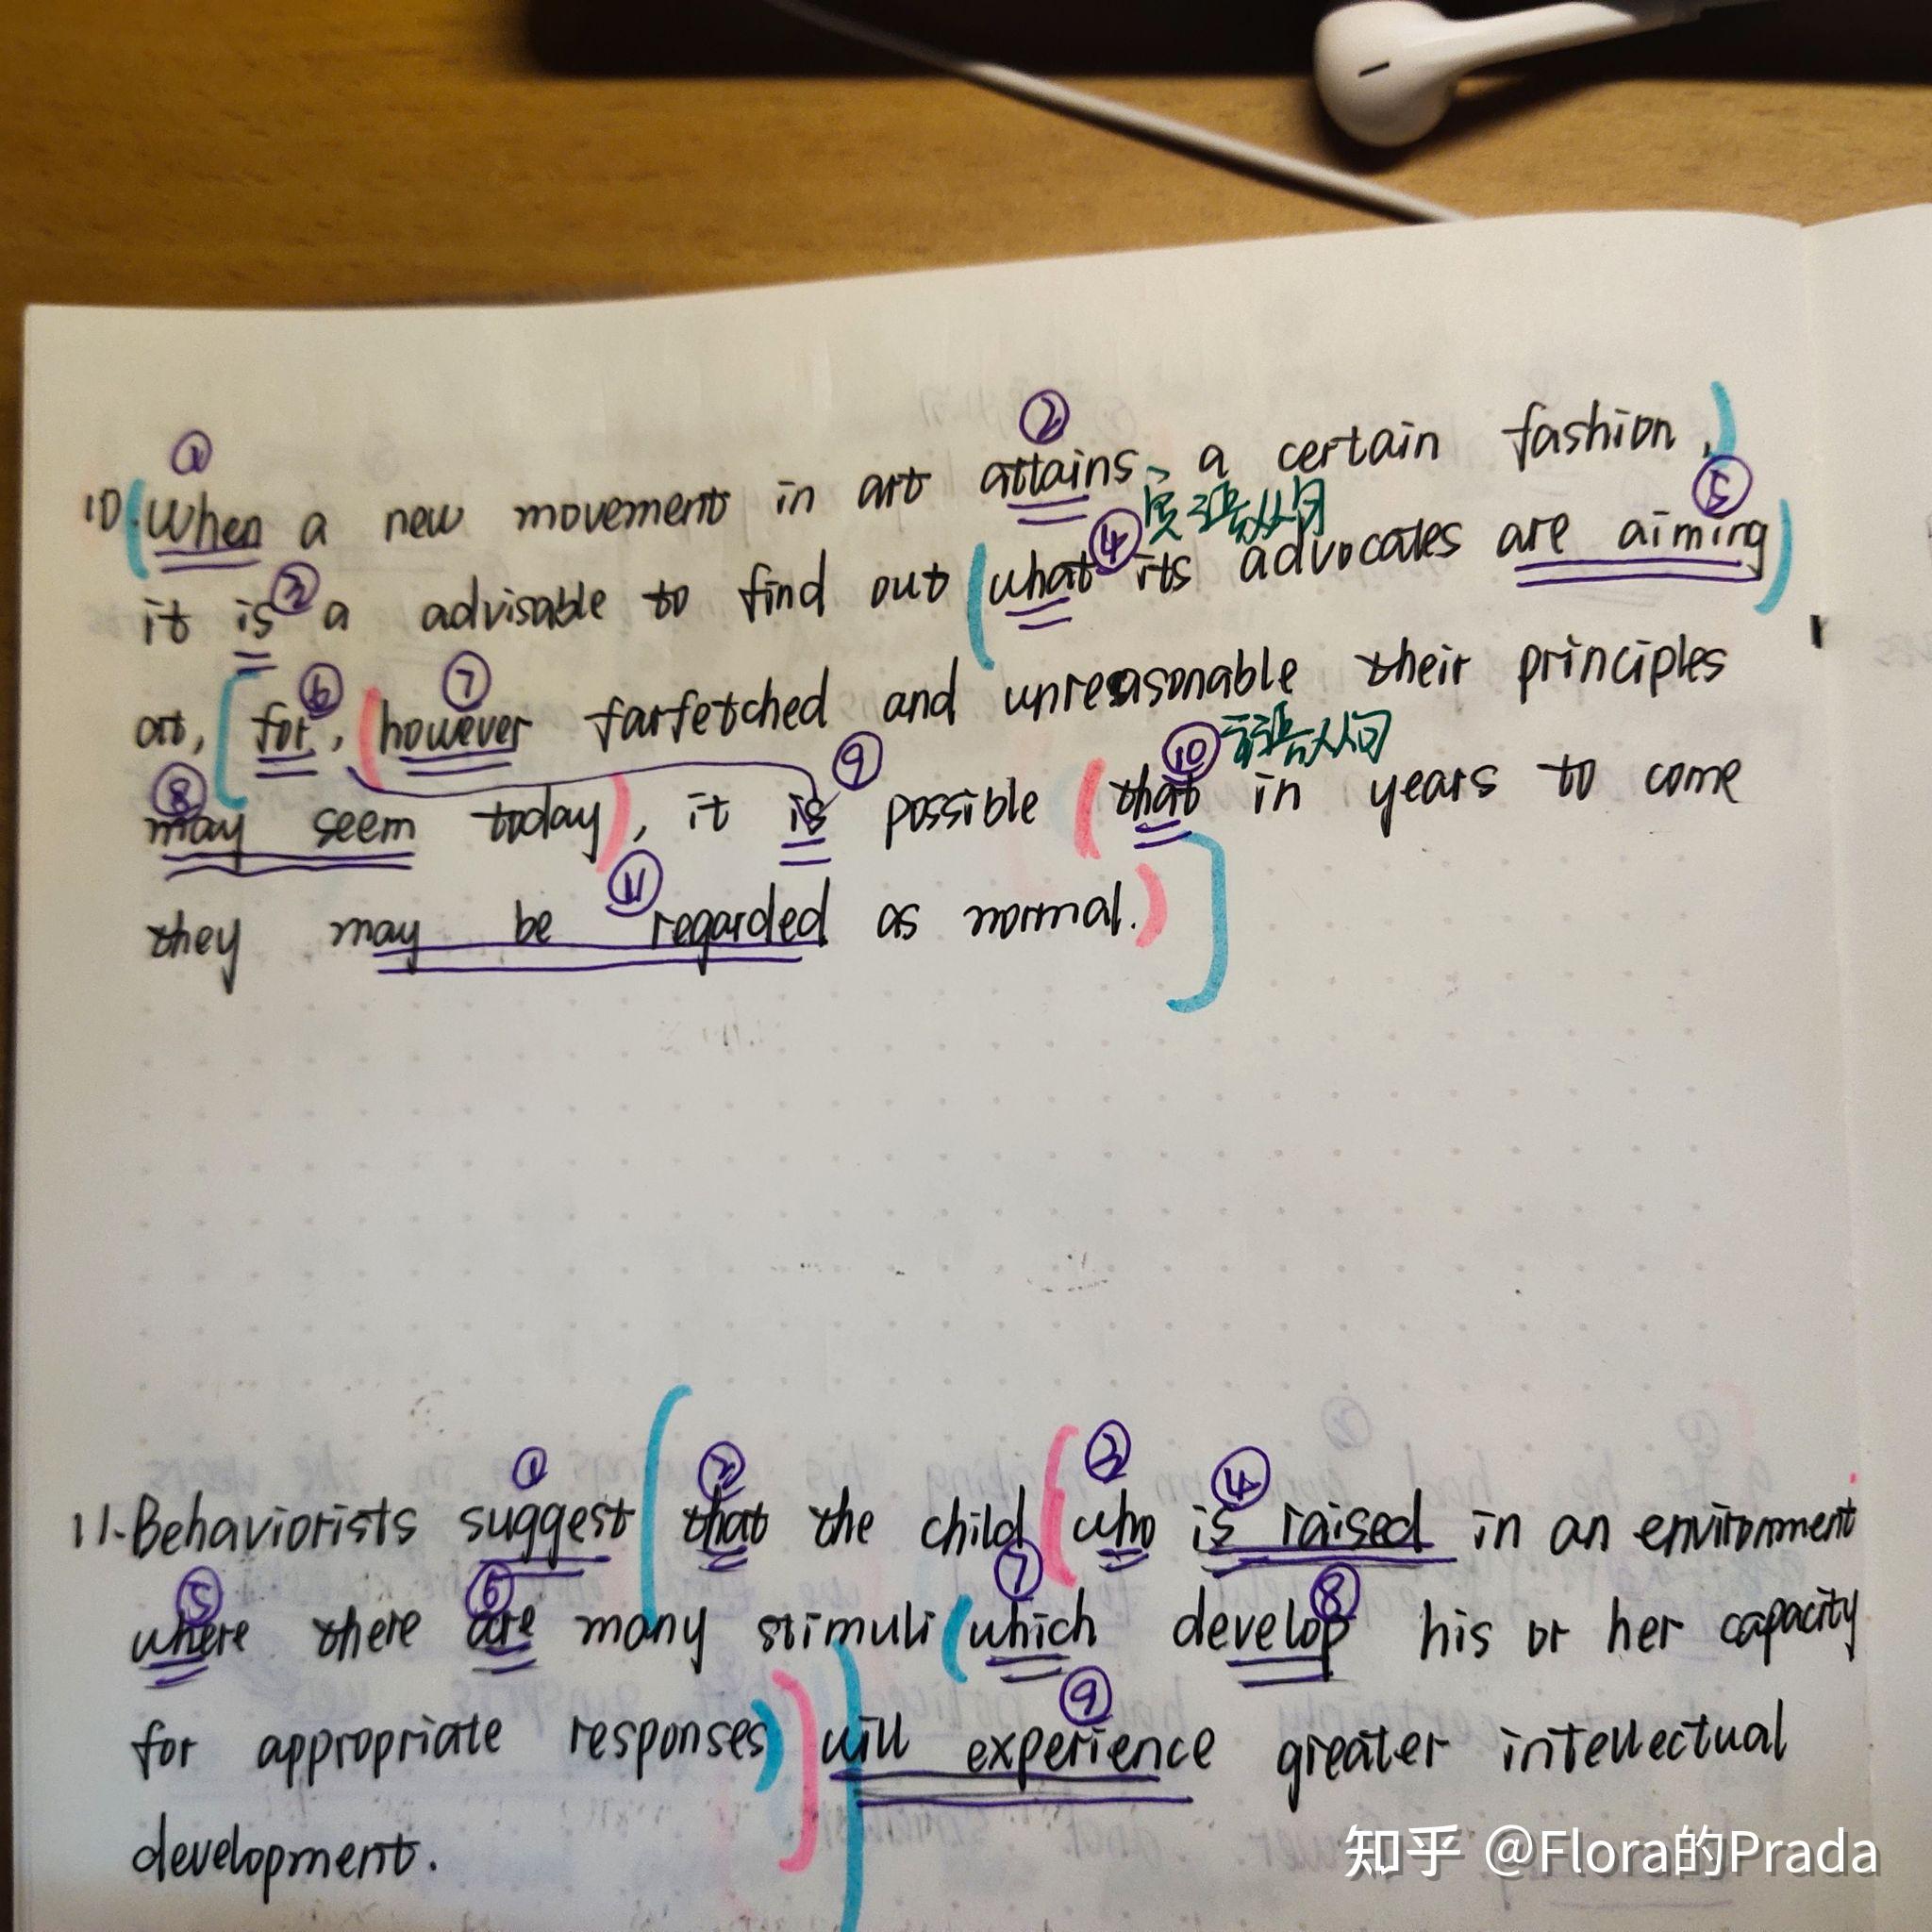 ① ②
10. When a new movement in art attains a certain fashion,
④ 宾语从句 ⑤
it is ③ a advisable to find out what its advocates are aiming
⑥ ⑦
at, for, however farfetched and unreasonable their principles
⑧ ⑨ ⑩ 主语从句
may seem today, it is possible that in years to come
⑪
they may be regarded as normal.
① ② ③ ④
11. Behaviorists suggest that the child who is raised in an environment
⑤ ⑥ ⑦ ⑧
where there are many stimuli which develop his or her capacity
⑨
for appropriate responses will experience greater intellectual
development.
知乎 @Flora的Prada